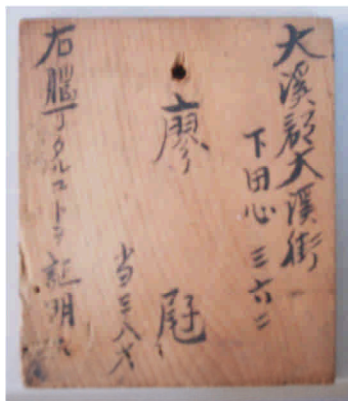 大溪郡大溪街
下田心三六二
廖尾
当三八才
右腦丁タルコトヲ証明ス